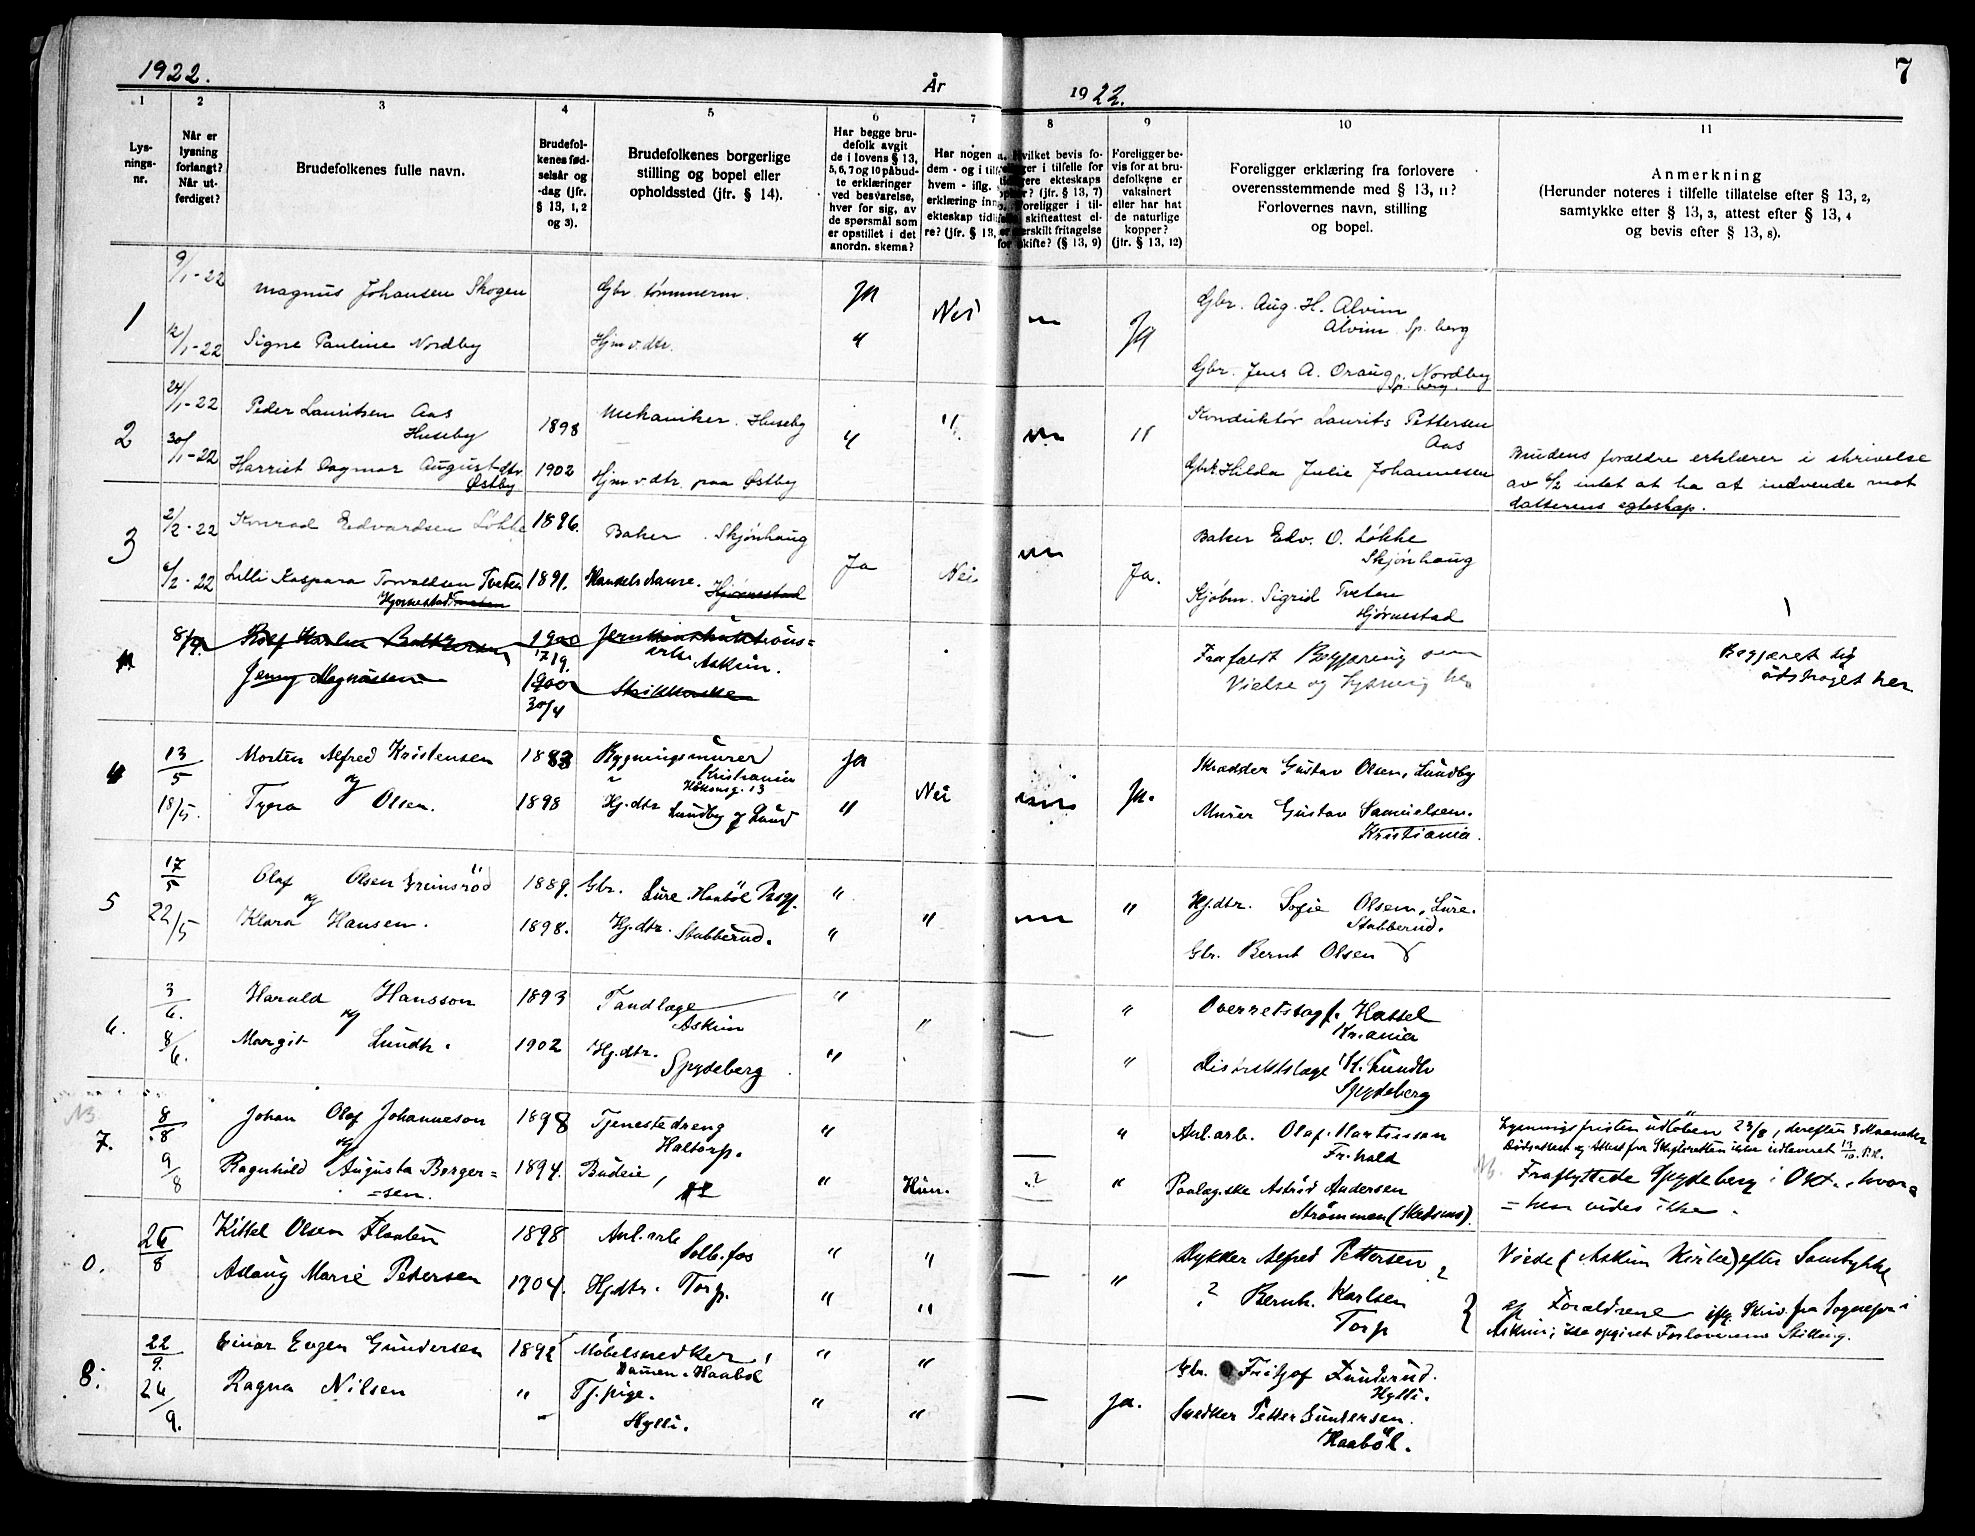 1922.
År
1922.
7
1
2
3
4
5
6
7
8
9
10
11
Lys-
nings-
nr.
Når er
lysning
forlangt?
Når ut-
ferdiget?
Brudefolkenes fulle navn.
Brudefol-
kenes fød-
selsår og
-dag (jfr.
§ 13, 1, 2
og 3).
Brudefolkenes borgerlige
stilling og bopel eller
opholdssted (jfr. § 14).
Har begge bru-
defolk avgit
de i lovens § 13,
5, 6, 7 og 10 påbud-
te erklæringer
ved besvarelse,
hver for sig, av
de spørsmål som
er opstillet i det
anordn. skema?
Har nogen a
dem - og i tilf
hvem - iflg.
erklæring inn
ekteskap tidl
re? (jfr. § 13,
Hvilket bevis fo-
ligger i tilfelle for
ekteskaps
(jfr. § 13, 7)
Foreligger i til-
skifteattest el-
særskilt fritagelse
for skifte? (§ 13, 9)
Foreligger be-
vis for at bru-
defolkene er
vaksinert
eller har hat
de naturlige
kopper?
(jfr. § 13, 12)
Foreligger erklæring fra forlovere
overensstemmende med § 13, 11?
Forlovernes navn, stilling
og bopel.
Anmerkning
(Herunder noteres i tilfelle tillatelse efter § 13, 2,
samtykke efter § 13, 3, attest efter § 13, 4
og bevis efter § 13, 8).
1
9/1-22 Magnus Johansen Skogen Gbr. tømmerm. Ja Nei Ja Gbr. Aug. H. Alvim
Alvim Sp. berg
12/1-22 Signe Pauline Nordby Hjmv. dtr. "
Gbr. Jens A. Oraug, Nordby
Sp. berg.
2
24/1-22 Peder Lauritsen Aas
Huseby 1898 Mekaniker. Huseby " " " Konduktør Laurits Pettersen
Aas
30/1-22 Harriet Dagmar Augustdtr
Østby 1902 Hjmv. dtr. paa Østby Gbr. Hilda Julie Johannesen
Brudens forældre erklærer i skrivelse
av 6/2 intet at ha at indvende mot
datterens egteskap.
3
2/2-22 Konrad Edvardsen Løkke 1896. Baker. Skjønhaug Ja Nei Ja. Baker Edv. O. Løkke
Skjønhaug
6/2-22 Lilli Kaspara Torvaldsen Tveten
Hjørnestad 1891. Handelsdame. Hjørnestad
Kjøbm. Sigrid Tveten
Hjørnestad
8/4 Rolf Karlen Baltzersen 1900 Jernkonstruktions=
Askim.
Jenny Magnussen 1900
30/4
Frafaldt Begjæring om
Vielse og Lysning her
Begjæret sig
utstrøget her
4
13/5 Morten Alfred Kristensen 1883 Bygningsmurer
Kristiania
Ja Nei Ja. Skrædder Gustav Olsen, Lundby
og
18/5. Tyra Olsen. 1898 Hj. dtr. Lundby "
Murer Gustav Samuelsen.
Kristiania.
5
17/5 Olaf Olsen Greinsröd 1889. Gbr. Lure. Haaböl " " " Hj. dtr. Sofie Olsen, Lure.
Stubberud.
og
22/5 Klara Hansen. 1898. Hj. dtr. Stubberud. "
Gbr. Bernt Olsen
6.
3/6. Harald Hansson 1893 Tandlæge
Askim " " " Overretssagf. Hassel
Kr.ania
og
8/6. Margit Lundh. 1902 Hj. dtr.
Spydeberg " "
Distriktslæge Lundh
Spydeberg
7.
8/8 Johan Olaf Johanneson 1898 Tjenestedreng
Haltorp. " " Anl. arb. Olaf Martinson
og
9/8 Ragnhild Augusta Berger=
=sen. 1894. Budeie, " Hun. ? "
Astrid Andersen
Strömmen (Skedsmo).
Lysningsfristen udlöben 23/8, derefter 3 Maaneder
Fraflyttede Spydeberg i Okt., hvor
=hen vides ikke.
0.
26/8 Kittel Olsen Flaaten 1898 Anl. arb.
Solb. fos " " Rykker Alfred Pettersen ?
Adaug Marie Pedersen 1904. Hj. dtr. Torp. " " "
? Bernh. Karlsen
Torp
Viede (Askim Kirke) efter Samtykke
af Forældrene iflg. Skriv. fra Sognepr. i
Askim; ikke opgivet Forloverens Stilling.
8.
22/9. Einar Eugen Gundersen 1892 Möbelsnedker,
Haaböl " " Gbr. Fritjof Lunderud.
Hylli.
26/9. Ragna Nilsen " Tj. pige.
Hylli. " " Ja.
Snedker Petter Gundersen.
Haaböl.